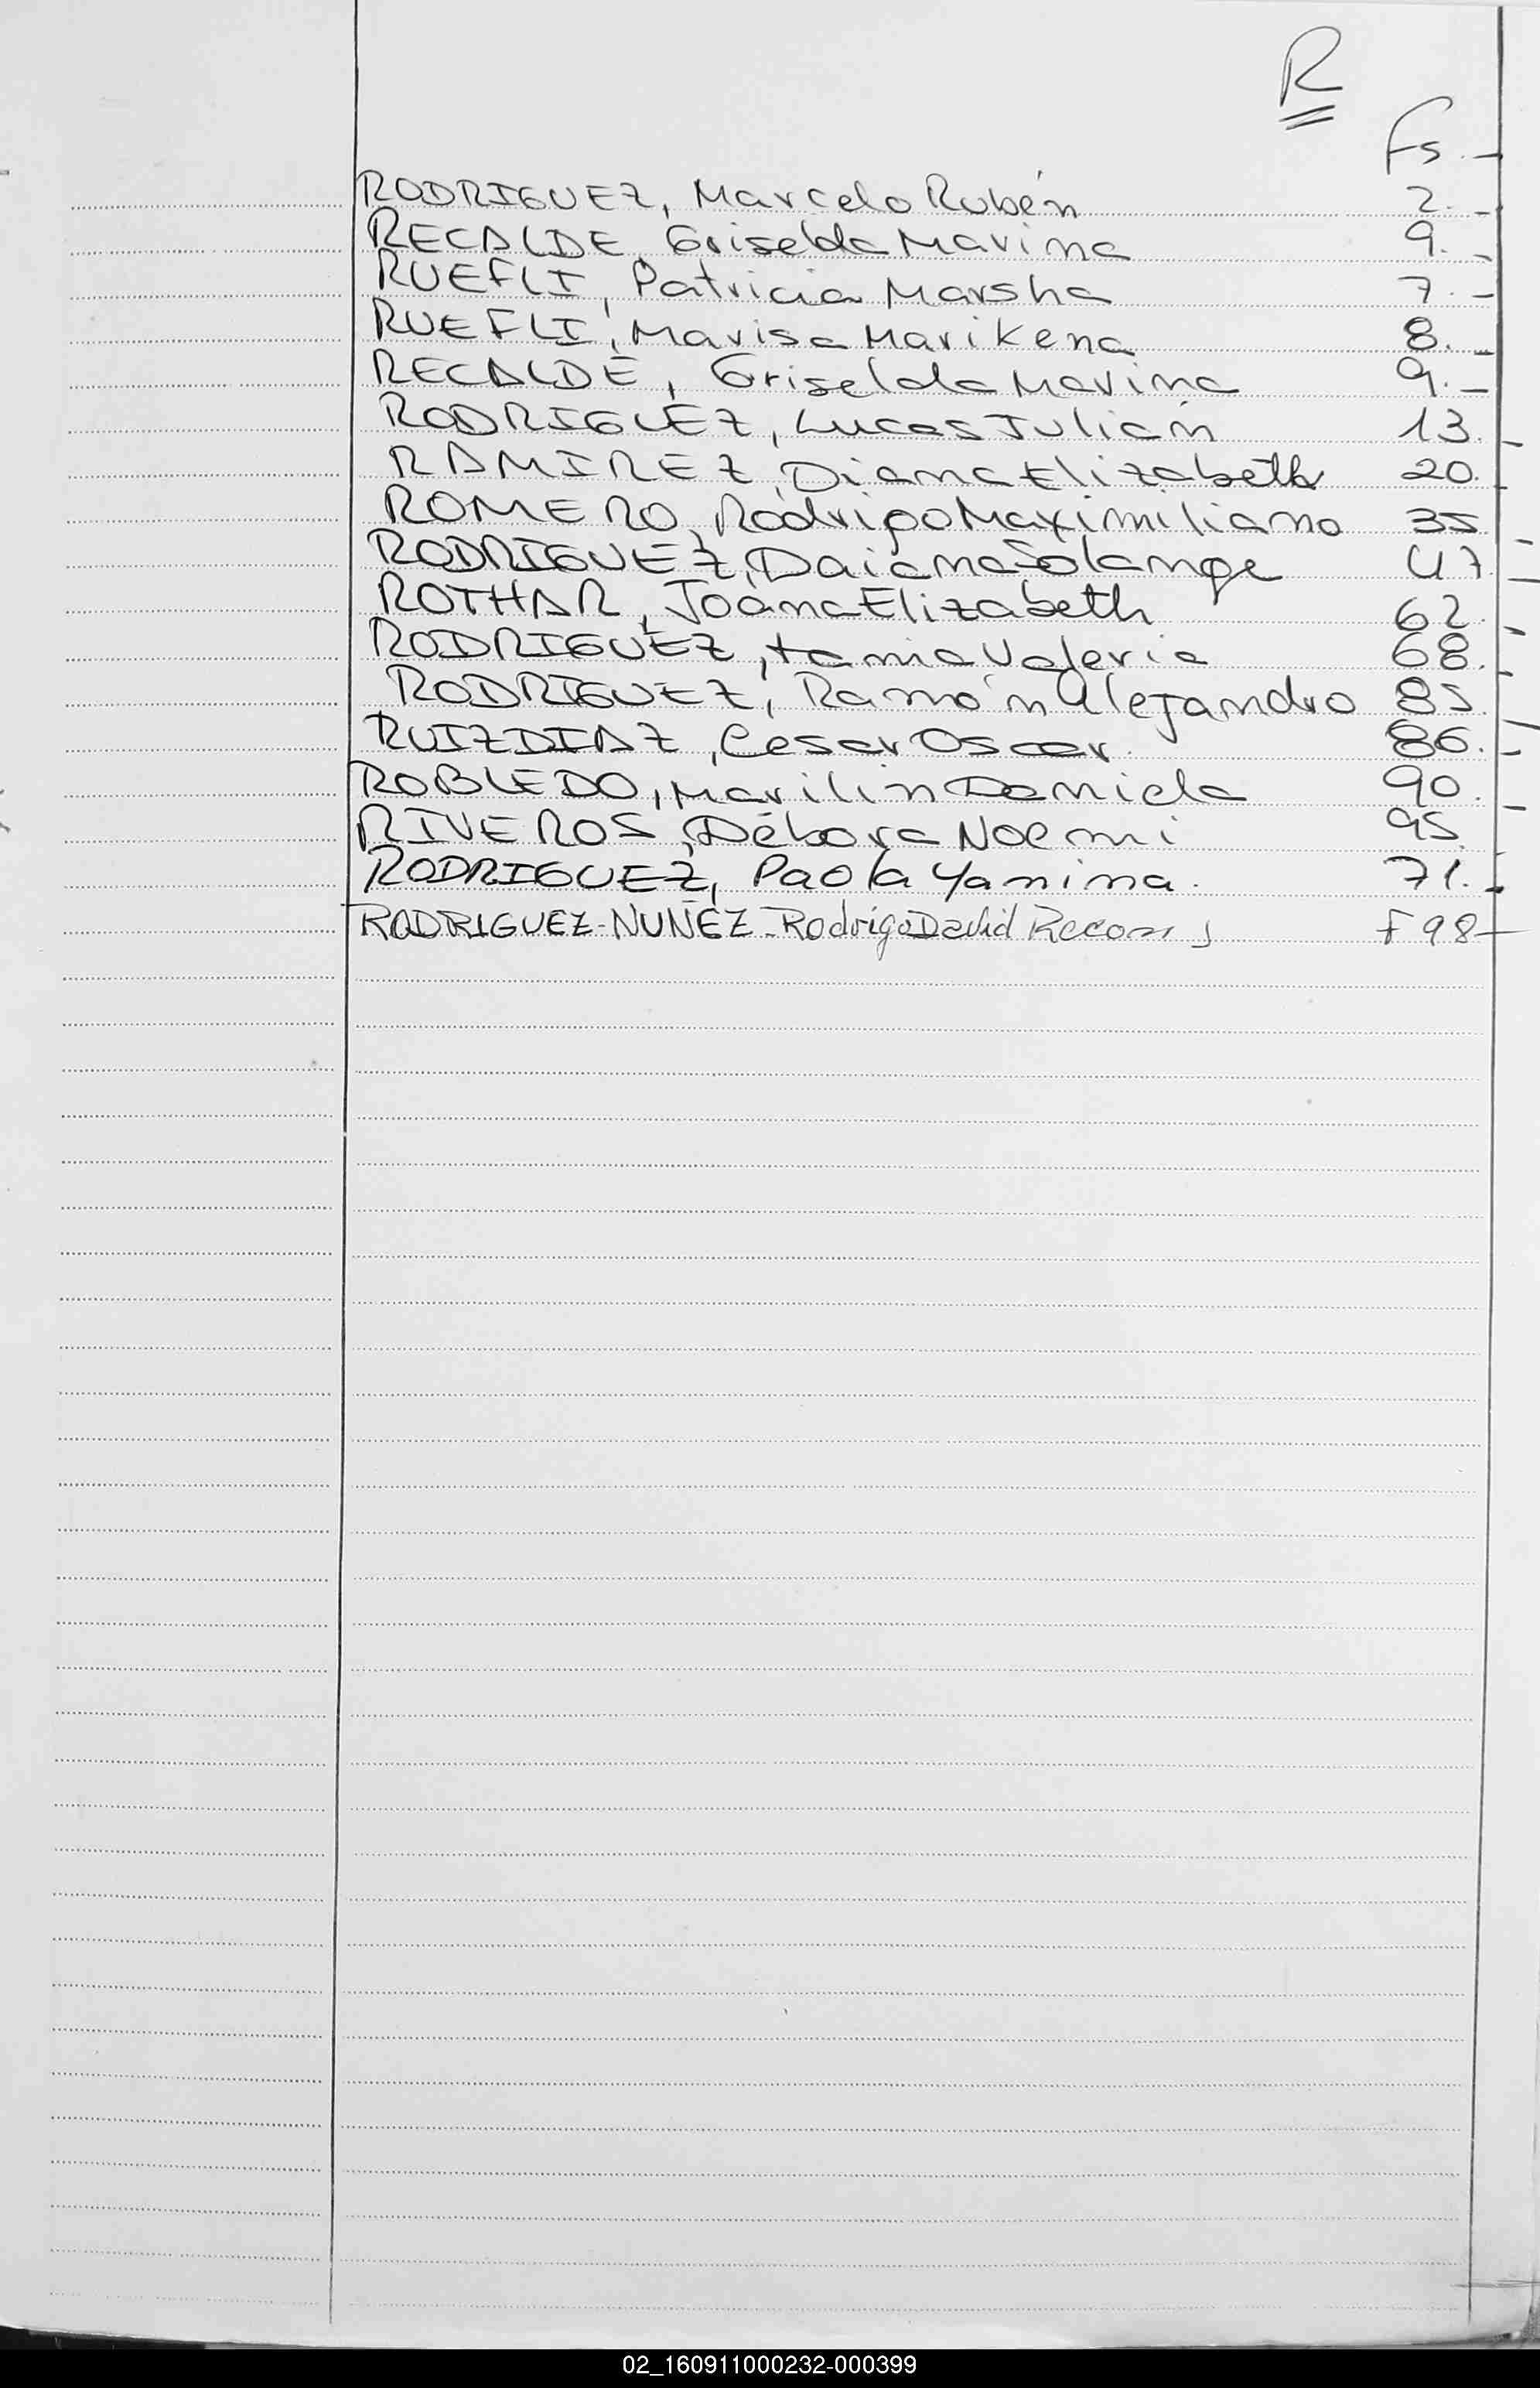 R
Fs.-
RODRIGUEZ, Marcelo Rubén 2.-
RECALDE, Griselda Marina 9.-
RUEFLI, Patricia Marsha 7.-
RUEFLI, Marisa Marikena 8.-
RECALDE, Griselda Marina 9.-
RODRIGUEZ, Lucas Julián 13.-
RAMIREZ, Diana Elizabeth 20.-
ROMERO, Rodrigo Maximiliano 35.-
RODRIGUEZ, Daiana Solange 47-
ROTHAR, Joana Elizabeth 62.-
RODRIGUEZ, tania Valeria 68.-
RODRIGUEZ, Ramón Alejandro 85.-
RUIZ DIAZ, Cesar Oscar. 86.-
ROBLEDO, Marilin Daniela 90.-
RIVEROS, Débora Noemi 95.
RODRIGUEZ, Paola Yanina. 71.-
RODRIGUEZ-NUÑEZ-Rodrigo David F 98-
02_160911000232-000399